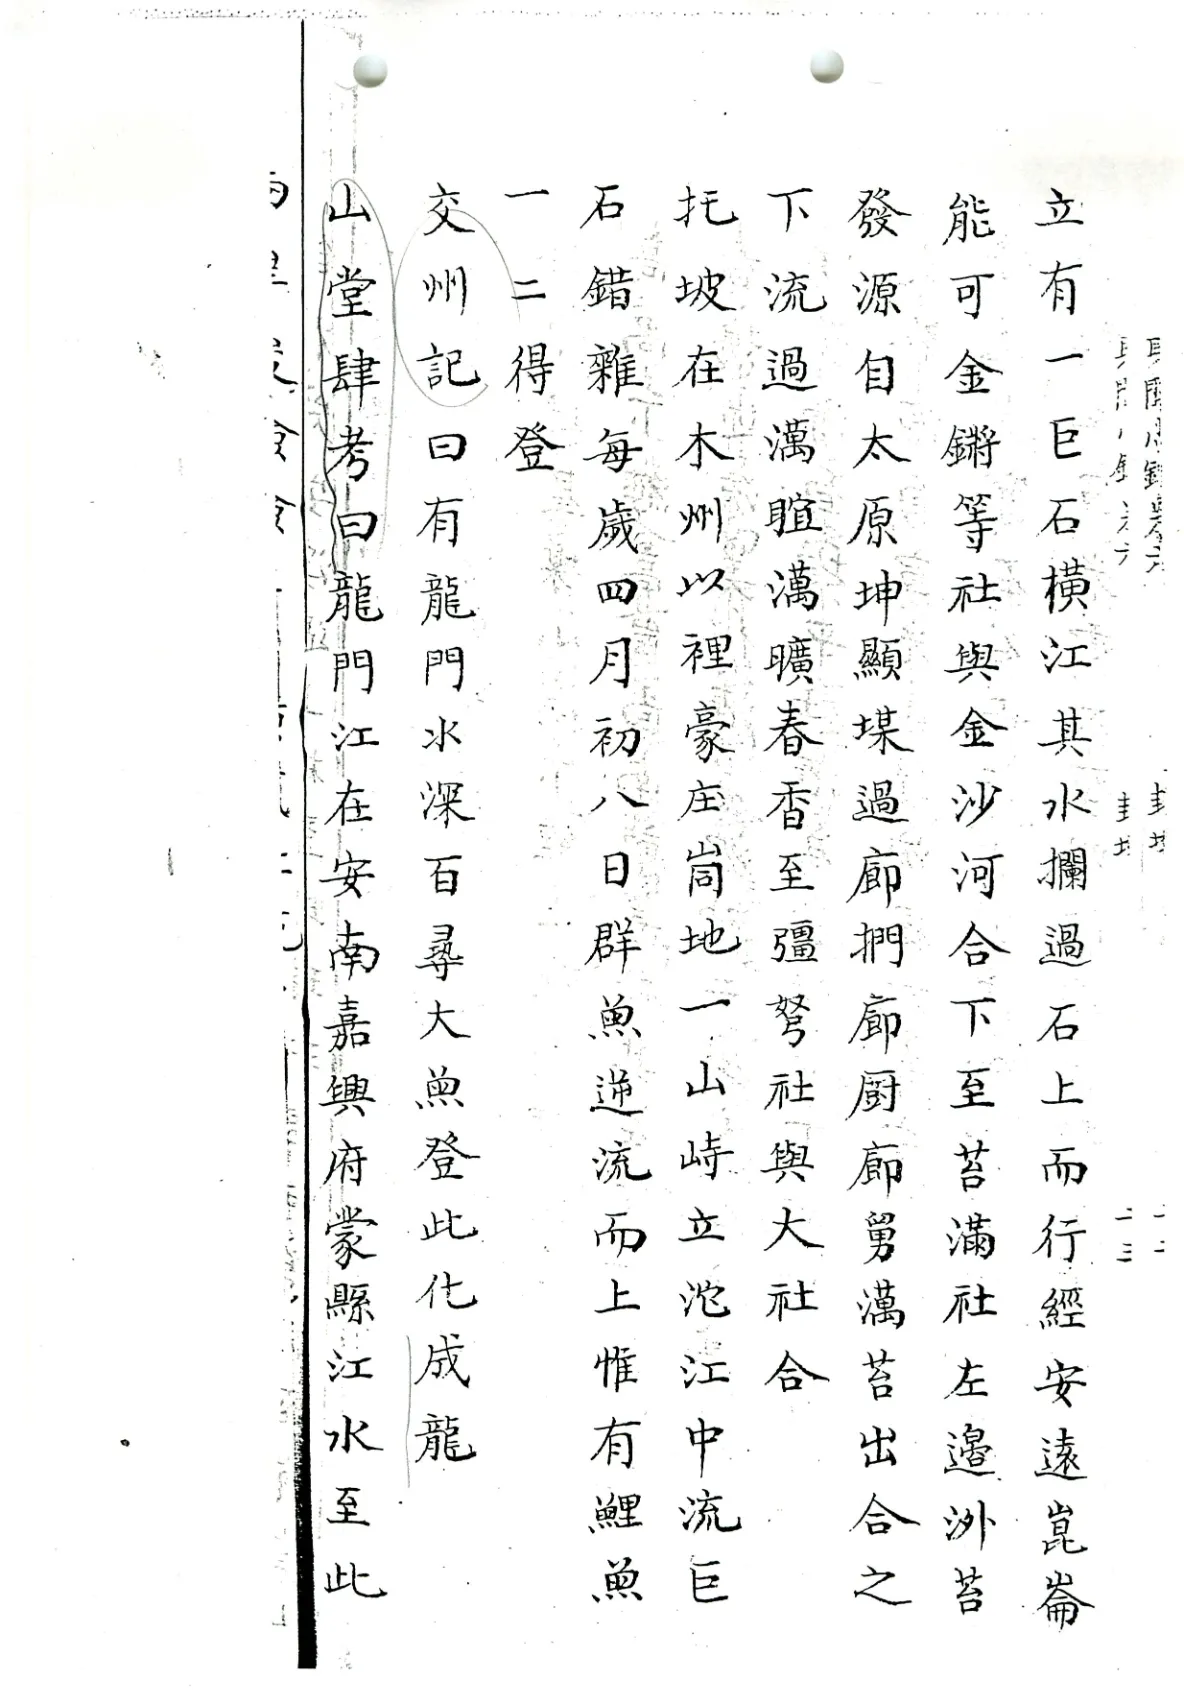 立有一巨石橫江其水攔過石上而行經安遠崑崙
能可金鏘等社與金沙河合下至苔滿社左邊沙苔
發源自太原坤顯堞過廊捫廊廚廊舅澫苔出合之
下流過澫暄澫曠春香至彊弩社與大社合
扥坡在木州以裡豪庄峝地一山峙立沱江中流巨
石錯雜每歲四月初八日群魚逆流而上惟有鯉魚
一二得登
交州記曰有龍門水深百尋大魚登此化成龍
山堂肆考曰龍門江在安南嘉興府蒙縣江水至此